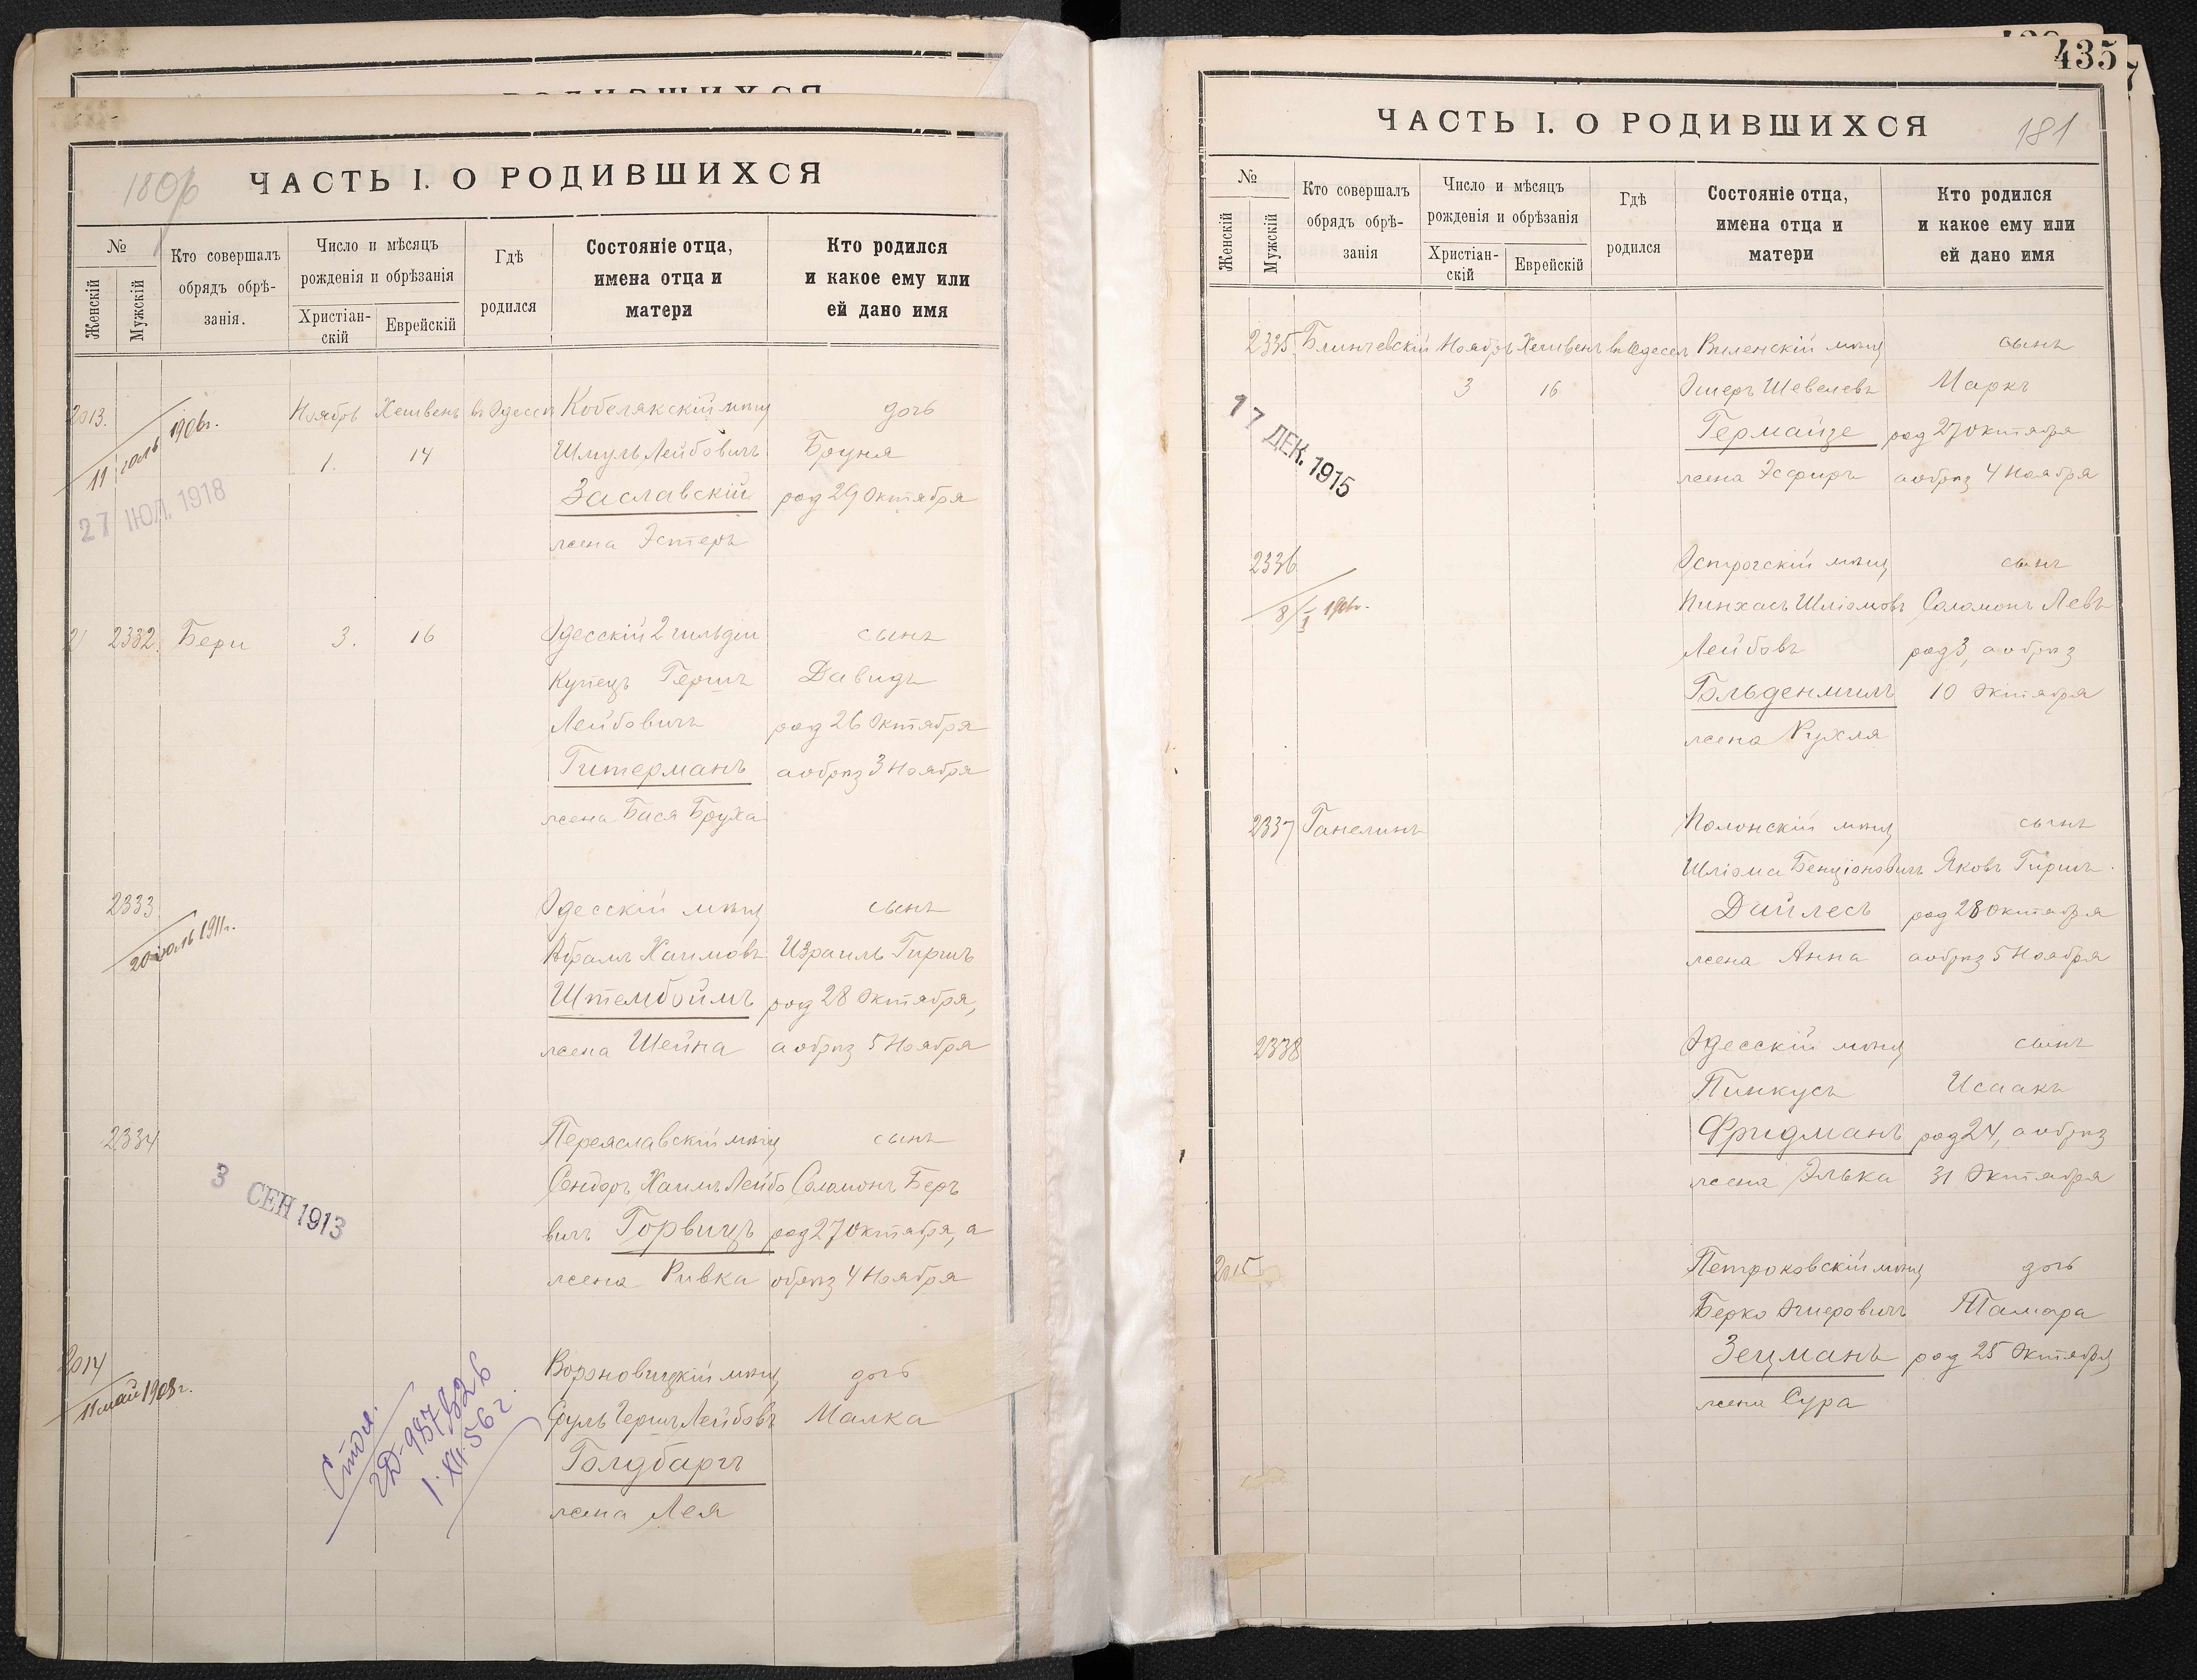 РОДИВШИХСЯ
180б
ЧАСТЬ I. О РОДИВШИХСЯ
№
Женскій
Мужскій
Кто совершалъ
обрядъ обрѣ-
занія.
Число и мѣсяцъ
рожденія и обрѣзанія
Христіан-
скій
Еврейскій
Гдѣ
родился
Состояніе отца,
имена отца и
матери
Кто родился
и какое ему или
ей дано имя
2013. Ноябрь Хешвенъ въ Одессѣ Кобелякскій мѣщ дочь
11 іюль 1906г.
1. 14 Шмуль Лейбовичъ Бруня
27 ІЮЛ. 1918
Заславскій род 29 Октября
жена Эстеръ
2332. Бери 3. 16 Одесскій 2 гильдіи сынъ
Купецъ Гершъ Давидъ
Лейбовичъ род 26 Октября
Гитерманъ а обрѣз 3 Ноября
жена Бася Бруха
2333 Одесскій мѣщ сынъ
20 іюль 1911г.
Абрамъ Хаимовъ Израиль Гиршъ
Штембоймъ род 28 Октября,
жена Шейна а обрѣз 5 Ноября
2334 Переяславскій мѣщ сынъ
3 СЕН 1913
Сендоръ Хаимъ Лейбо Соломонъ Беръ
вичъ Горвицъ род 27 Октября, а
жена Ривка обрѣз 4 Ноября
2014 Вороновицкій мѣщ дочь
11 май 1908г.
Сруль Гершъ Лейбовъ Малка
Голдбаргъ
жена Лея
1.XII.56г.
435
ЧАСТЬ I. О РОДИВШИХСЯ
181
№
Женскій
Мужскій
Кто совершалъ
обрядъ обрѣ-
занія
Число и мѣсяцъ
рожденія и обрѣзанія
Христіан-
скій
Еврейскій
Гдѣ
родился
Состояніе отца,
имена отца и
матери
Кто родился
и какое ему или
ей дано имя
2335. Блинчевскій Ноябрь Хешвенъ въ Одессѣ Виленскій мѣщ сынъ
3 16 Эшеръ Шевелевъ Маркъ
17 ДЕК. 1915
Гермайзе род 27 Октября
жена Эсфирь а обрѣз 4 Ноября
2336 Острогскій мѣщ сынъ
Пинхасъ Шліомовъ Соломонъ Левъ
Лейбовъ род 3, а обрѣз
Гольденмиль 10 Октября
жена Рухля
2337 Ганелинъ Полонскій мѣщ сынъ
Шліома Бенціоновичъ Яковъ Гиршъ.
Дайлесъ род 28 Октября
жена Анна а обрѣз 5 Ноября
2338 Одесскій мѣщ сынъ
Пинкусъ Исаакъ
Фридманъ род 24, а обрѣз
жена Элька 31 Октября
2015 Петроковскій мѣщ дочь
Берко Тамара
Зецманъ род 25 Октября
жена Сура